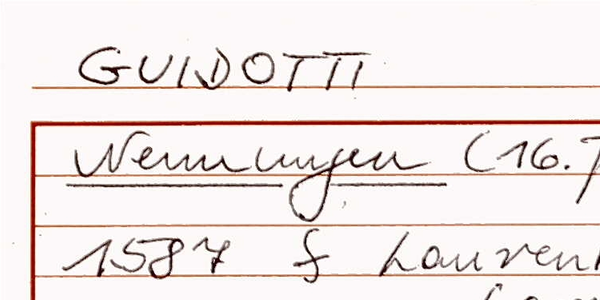 GUIDOTTI
Nenningen (16.
1587 f Lauren